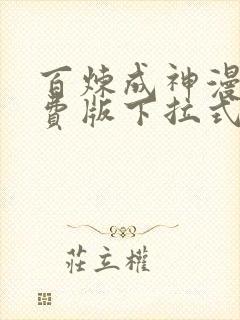 百炼成神漫
费版下拉式
莊立權